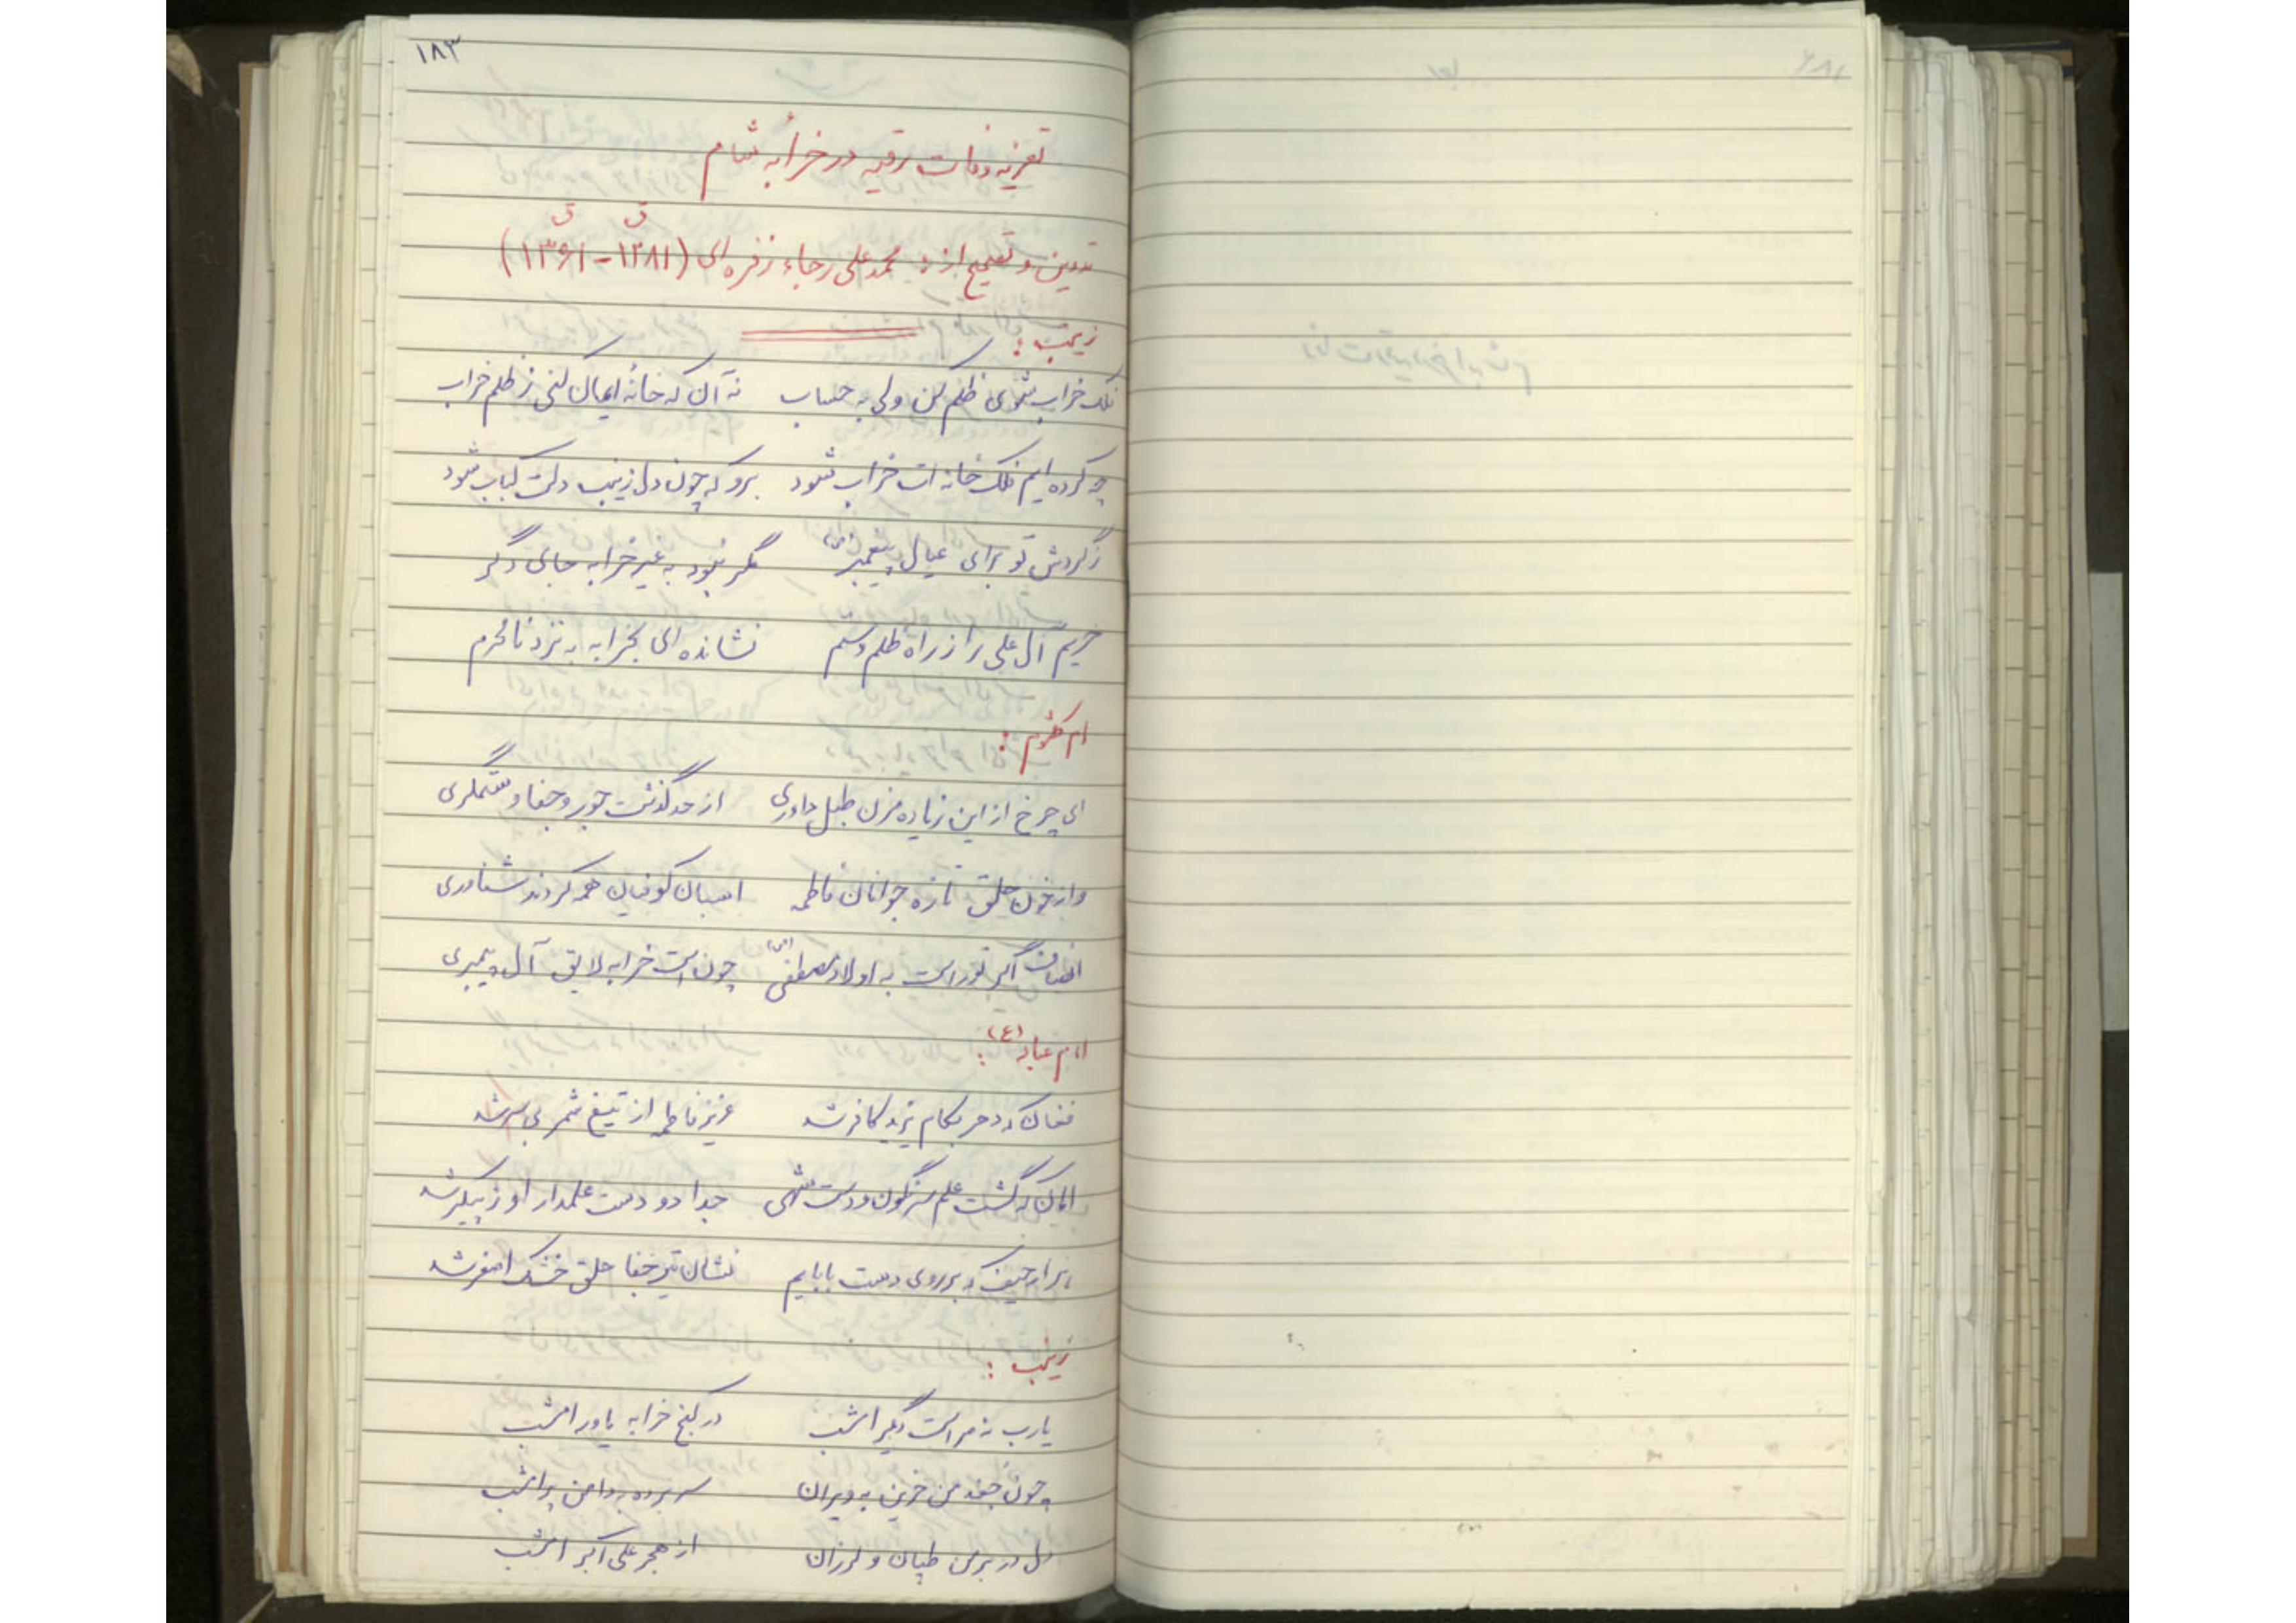 ۱۸۳
تعزیه وفات رقیه در خرابه شام
تدوین و تصحیح از: محمد علی رجاء زفره ای (۱۲۸۱ ق - ۱۳۶۱ ق)
زینب:
فلک خراب شوی ظلم کن ولی به حساب نه آن که خانهٔ ایمان کنی ز ظلم خراب
چه کرده ایم فلک خانه ات خراب شود برو که چون دل زینب دلت کباب شود
ز گردش تو برای عیال پیغمبر (ص) مگر نبود به غیر خرابه جای دگر
حریم آل علی را ز راه ظلم و ستم نشانده ای بخرابه به نزد نامحرم
ام کلثوم:
ای چرخ از این زیاده مزن طبل داوری از حد گذشت جور و جفا و ستمگری
واز خون حلق تازه جوانان فاطمه اسبان کوفیان همه کردند شناوری
انصاف اگر تو راست به اولاد مصطفی (ص) چون است خرابه لایق آل پیمبری
امام عباد (ع):
فغان که دهر بکام یزید کافر شد عزیز فاطمه از تیغ شمر بی سر شد
امان که گشت علم سرنگون و دست تهی جدا دو دست علمدار او ز پیکر شد
هزار حیف که بر روی دست بابایم نشان تیر جفا حلق خشک اصغر شد
زینب:
یارب نه مراست دیگر امشب در کنج خرابه یاور امشب
چون جغد من حزین به ویران سر برده به دامن پر امشب
دل در بر من طپان و لرزان از هجر علی اکبر امشب